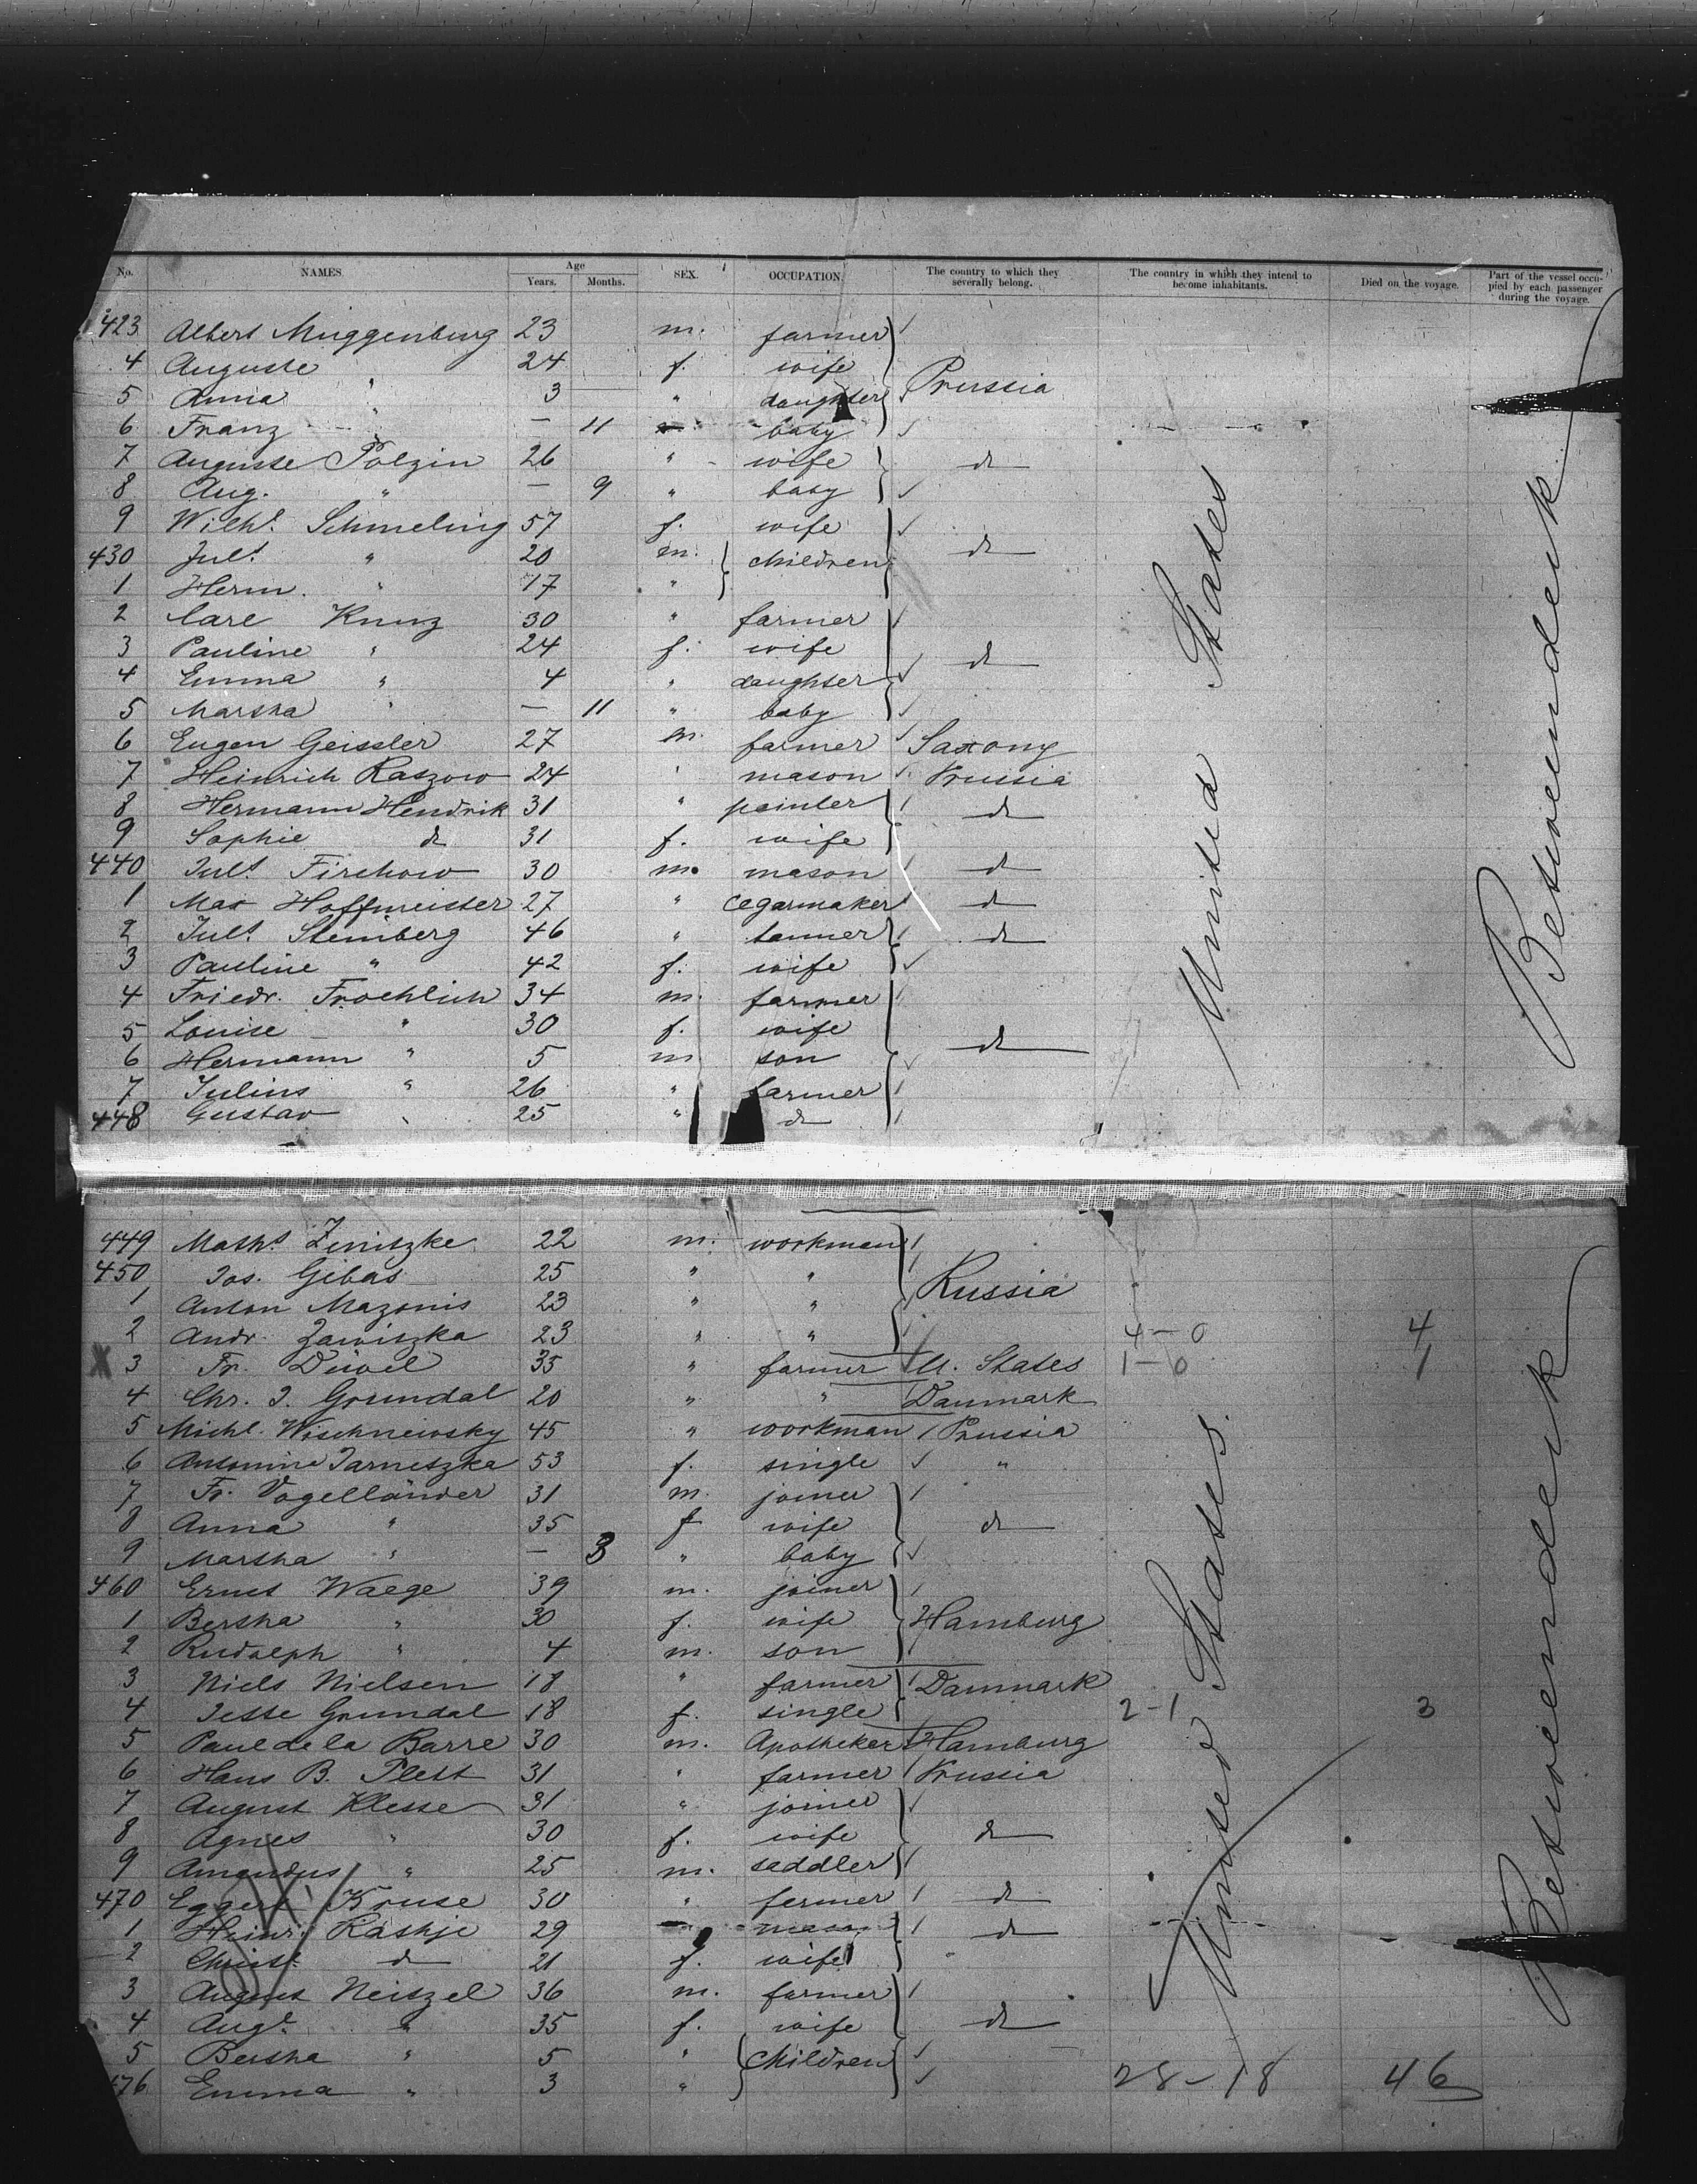 No. NAMES. Age Years. Months. SEX. OCCUPATION. The country to which they severally belong. The country in which they intend to become inhabitants. Died on the voyage. Part of the vessel occupied by each passenger during the voyage.
423 Albert Muggenburg 23 m. farmer
4 Auguste " 24 f. wife Prussia
5 Anna " 3 " daughter
6 Franz " — 11 baby
7 Auguste Polzin 26 " wife do
8 Aug. " — 9 " baby
9 Wilhe. Schmeling 57 f. wife
430 Juls. " 20 m. children do
1 Herm. " 17 "
2 Carl Kunz 30 " farmer
3 Pauline " 24 f. wife do
4 Emma " 4 " daughter
5 Martha " — 11 " baby
6 Eugen Geissler 27 m. farmer Saxony
7 Heinrich Raszow 24 " mason Prussia
8 Hermann Hendrik 31 " painter do
9 Sophie do 31 f. wife
440 Juls. Firchow 30 m. mason do
1 Max Hoffmeister 27 " cegarmaker do
2 Juls. Steinberg 46 " tanner do
3 Pauline " 42 f. wife
4 Friedr. Froehlich 34 m. farmer
5 Louise " 30 f. wife
6 Hermann " 5 m son do
7 Julius " 26 " farmer
448 Gustav " 25 " do
United States
Betweendenk
449 Maths. Zinitzke 22 m. workman
450 Jos. Gibas 25 " " Russia
1 Anton Mazonis 23 " "
2 Andr. Zawiszka 23 " " 4-0 4
X 3 Fr. Düvel 35 " farmer U. States 1-0 1
4 Chr. J. Grundal 20 " " Danmark
5 Michl. Wischniewsky 45 " workman Prussia
6 Antonine Jarneszka 53 f. single "
7 Fr. Vogelländer 31 m. joiner
8 Anna " 35 f wife do
9 Martha " — 3 " baby
460 Ernst Waege 39 m. joiner
1 Bertha " 30 f. wife Hamburg
2 Rudolph " 4 m. son
3 Niels Nielsen 18 " farmer Danmark
4 Jesse Grundal 18 f. single 2-1 3
5 Paul de la Barre 30 m. Apotheker Hamburg
6 Hans B. Plett 31 " farmer Prussia
7 August Klesse 31 " joiner
8 Agnes " 30 f. wife do
9 Amandus " 25 m. saddler
470 Eggert Kruse 30 " farmer do
1 Heinr. Rathje 29 mason do
2 Christ. do 21 f. wife
3 August Neitzel 36 m. farmer
4 Auge. " 35 f. wife do
5 Bertha " 5 " children
476 Emma " 3 " 28-18 46
United States
Betweendenk